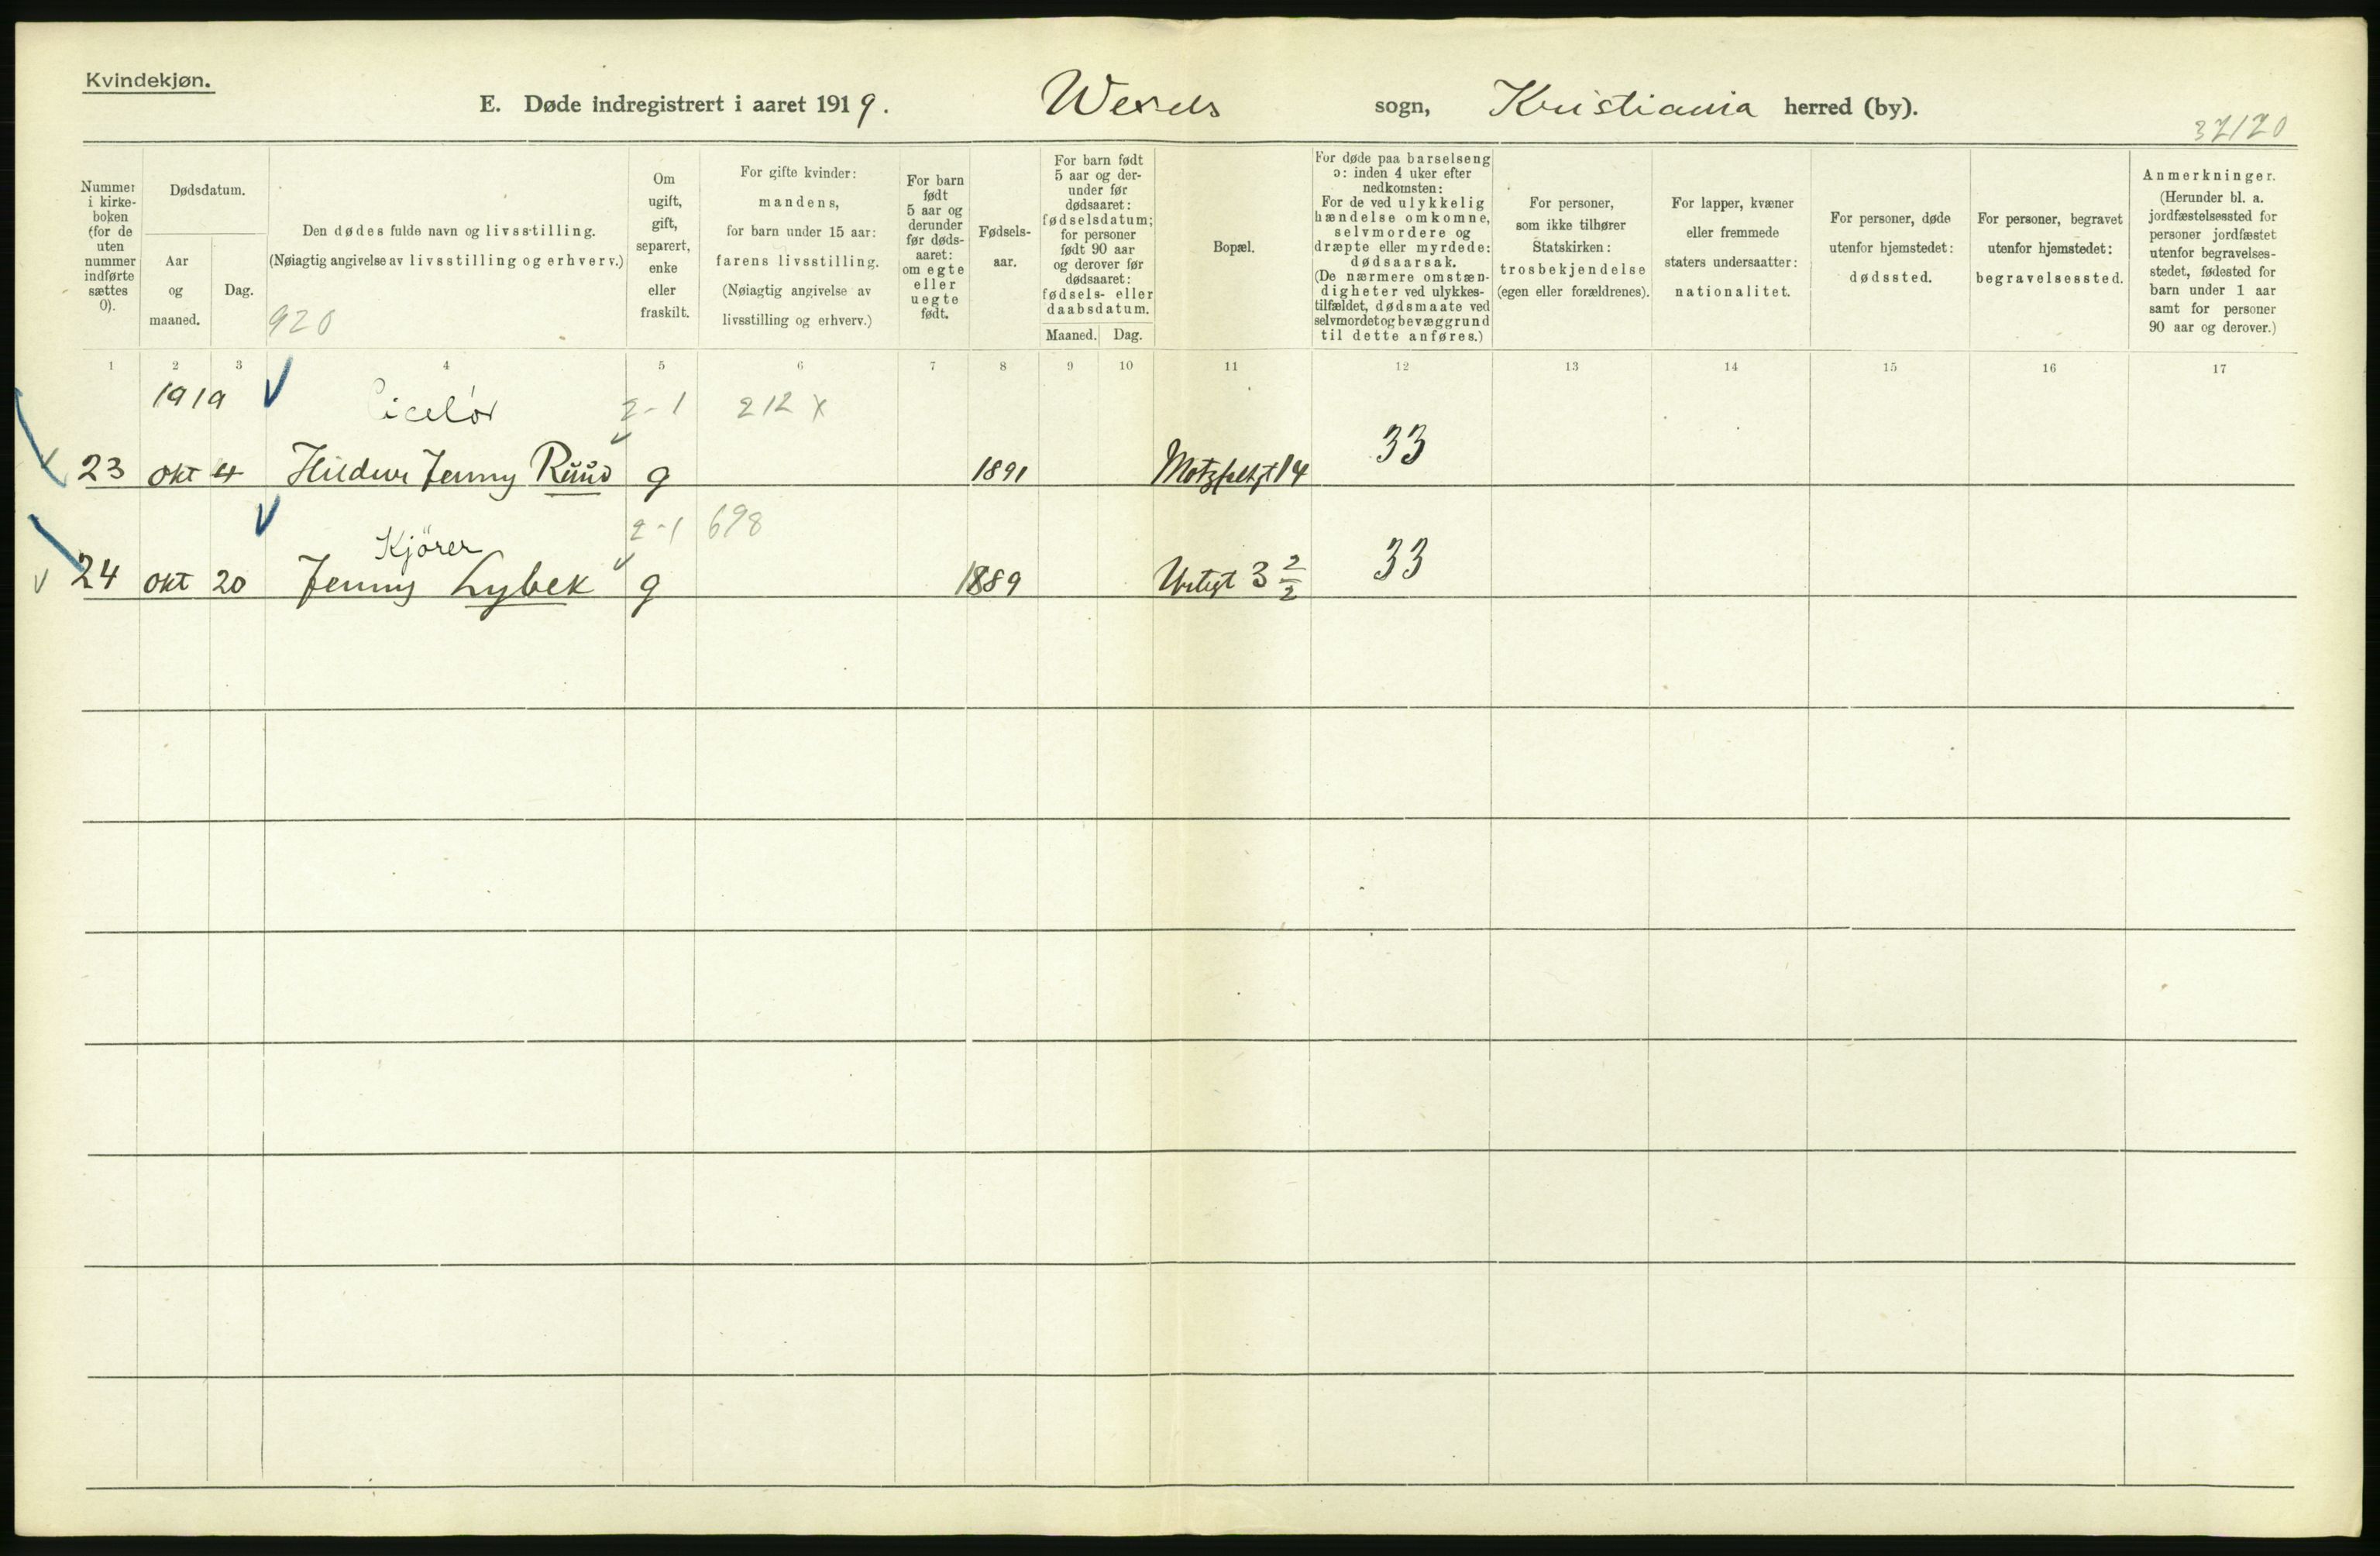 Kvindekjøn.
E. Døde indregistrert i aaret 1919. Wexels sogn, Kristiania herred (by).
32/20
Nummer i kirke-boken (for de uten nummer indførte sættes 0).
Dødsdatum.
Aar og maaned.
Dag.
Den dødes fulde navn og livsstilling.
(Nøiagtig angivelse av livsstilling og erhverv.)
920
Om ugift, gift, separert, enke eller fraskilt.
For gifte kvinder: mandens, for barn under 15 aar: farens livsstilling.
(Nøiagtig angivelse av livsstilling og erhverv.)
For barn født 5 aar og derunder før døds-aaret: om egte eller uegte født.
Fødsels-aar.
For barn født 5 aar og der-under før dødsaaret: fødselsdatum; for personer født 90 aar og derover før dødsaaret: fødsels- eller daabsdatum.
Maaned. Dag.
Bopæl.
For døde paa barselseng ɔ: inden 4 uker efter nedkomsten:
For de ved ulykkelig hændelse omkomne, selvmordere og dræpte eller myrdede: dødsaarsak.
(De nærmere omstæn-digheter ved ulykkes-tilfældet, dødsmaate ved selvmordet og bevæggrund til dette anføres.)
For personer, som ikke tilhører Statskirken: trosbekjendelse (egen eller forældrenes).
For lapper, kvæner eller fremmede staters undersaatter: nationalitet.
For personer, døde utenfor hjemstedet: dødssted.
For personer, begravet utenfor hjemstedet: begravelsessted.
Anmerkninger.
(Herunder bl. a. jordfæstelsessted for personer jordfæstet utenfor begravelses-stedet, fødested for barn under 1 aar samt for personer 90 aar og derover.)
1 2 3 4 5 6 7 8 9 10 11 12 13 14 15 16 17
1919 2-1 212 x
23 okt 4 Hildur Jenny Ruud g 1891 Motzfeltgt 14 33
Kjörer 2-1 698
24 okt 20 Jenny Lybek g 1889 Urtegt 3 2/2 33